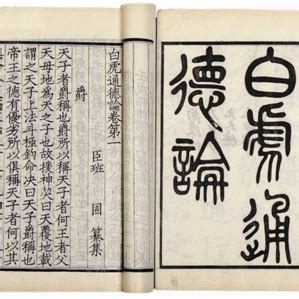 白虎通
德論
白虎通德論卷第一
臣班　固　纂集
爵
天子者爵稱也爵所以稱天子者何王者父
天母地為天之子也故援神契曰天覆地載
謂之天子上法斗極鉤命决曰天子爵稱也
帝王之德有優劣所以俱稱天子者何以其